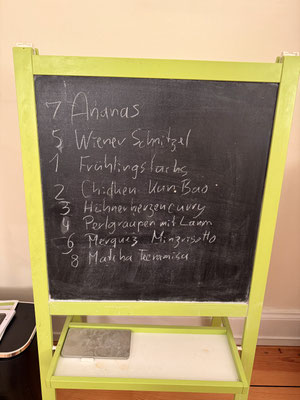 7 Ananas
5 Wiener Schnitzel
1 Frühlingslachs
2 Chicken Kung Bao
3 Hühnerherzencurry
4 Perlgraupen mit Lamm
6 Merguez Minzrisotto
8 Matcha Teramisu